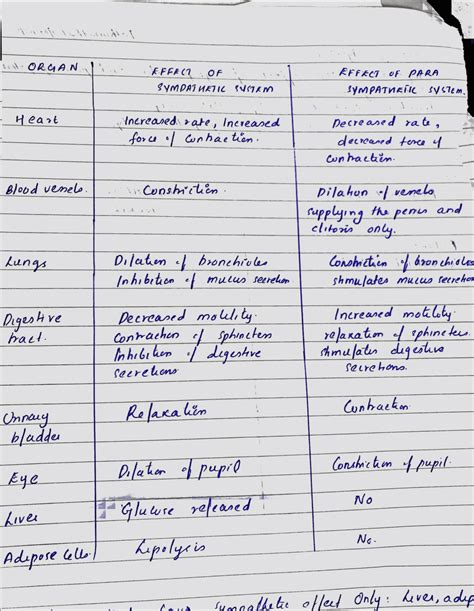 ORGAN
EFFECT OF
SYMPATHETIC SYSTEM
EFFECT OF PARA
SYMPATHETIC SYSTEM.
Heart
Increased rate, Increased
force of Contraction.
Decreased rate,
decreased force of
Contraction.
Blood vessels.
Constriction.
Dilation of vessels
supplying the penis and
clitoris only.
Lungs
Dilation of bronchioles
Inhibition of mucus secretion
Constriction of bronchioles
stimulates mucus secretion
Digestive
tract.
Decreased motility.
Contraction of sphincters
Inhibition of digestive
secretions
Increased motility.
relaxation of sphincters
stimulates digestive
secretions.
Urinary
bladder
Relaxation
Contraction
Eye
Dilation of pupil
Constriction of pupil.
Liver
Glucose released
No
Adipose Cells.
Lipolysis
No.
sympathetic effect Only: Liver, adip